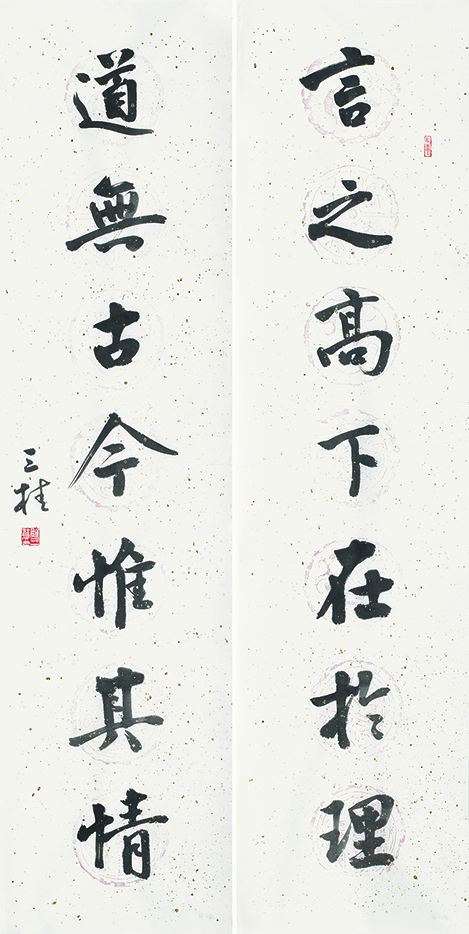 言之高下在於理
道無古今惟其情
三桂